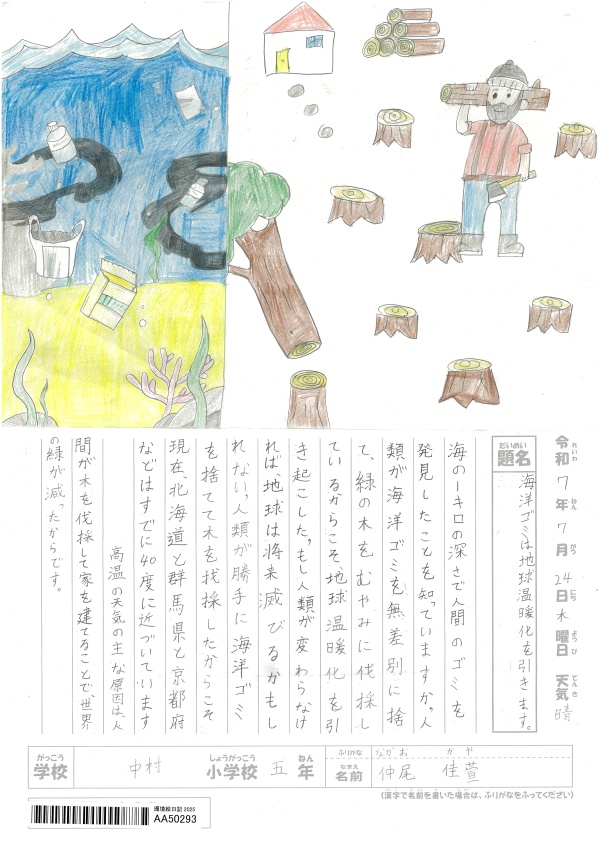 令和7年7月24日木曜日 天気 晴
れいわ ねん がつ にち ようび てんき
だいめい
題名 海洋ゴミは地球温暖化を引きます。
海のーキロの深さで人間のゴミを
発見したことを知っていますか。人
類が海洋ゴミを無差別に捨
て、緑の木をむやみに伐採し
ているからこそ、地球温暖化を引
き起こした。もし人類が変わらなけ
れば、地球は将来滅びるかもし
れない。人類が勝手に海洋ゴミ
を捨てて木を伐採したからこそ
現在、北海道と群馬県と京都府
などはすでに40度に近づいています
高温の天気の主な原因は、人
間が木を伐採して家を建てることで、世界
の緑が減ったからです。
がっこう しょうがっこう ねん
学校 中村 小学校 五 年
ふりがな なかお かや
なまえ
名前 仲尾 佳萱
(漢字で名前を書いた場合は、ふりがなをふってください)
環境絵日記 2025
AA50293